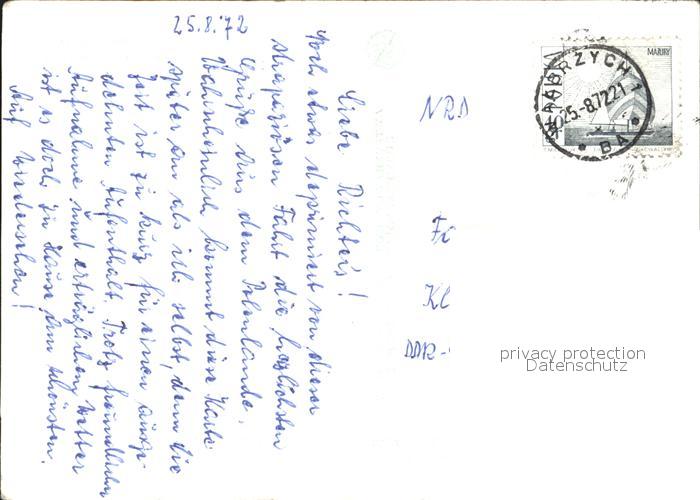 25.8.72
Liebe Richter's!
Noch etwas deprimiert von dieser
strapaziösen Fahrt die herzlichsten
Grüße aus dem Polenlande.
Wahrscheinlich kommt diese Karte
später an als ich selbst, denn die
Zeit ist zu kurz für einen ausge-
dehnten Aufenthalt. Trotz freundlicher
Aufnahme und erträglichem Wetter
ist es doch zu Hause am schönsten.
Auf Wiedersehen!
NRD
Fr
Kl
DDR-
MAZURY
25.-8.72.21
BA
privacy protection
Datenschutz